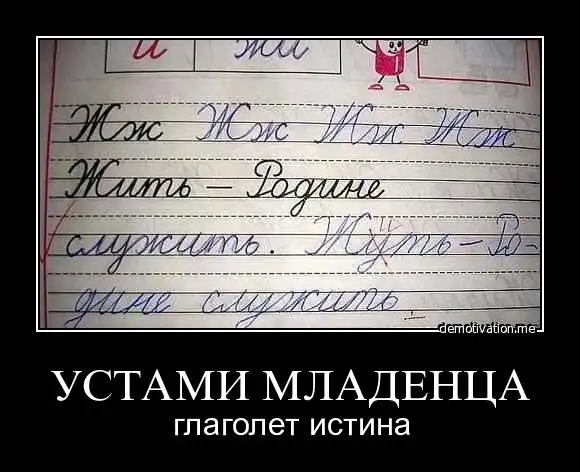 и жи
Жж Жж Жж Жж
Жить – Родине
служить. Жуть – Ро-
дине служить
demotivation.me
УСТАМИ МЛАДЕНЦА
глаголет истина